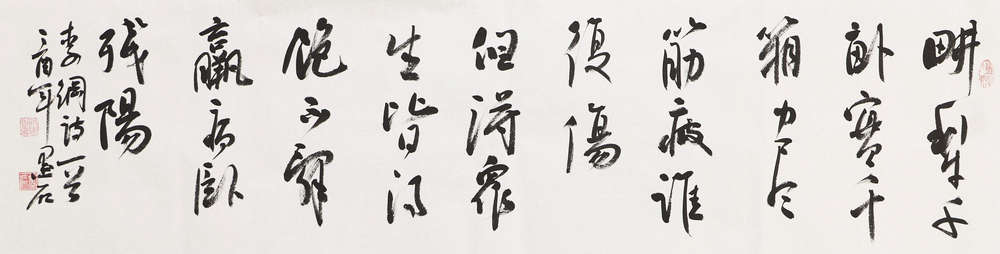 畊犁千
畝實千
箱力尽
筋疲誰
復傷
但得眾
生皆得
飽不辭
羸病臥
殘陽
李綱詩一首
丁酉年墨石